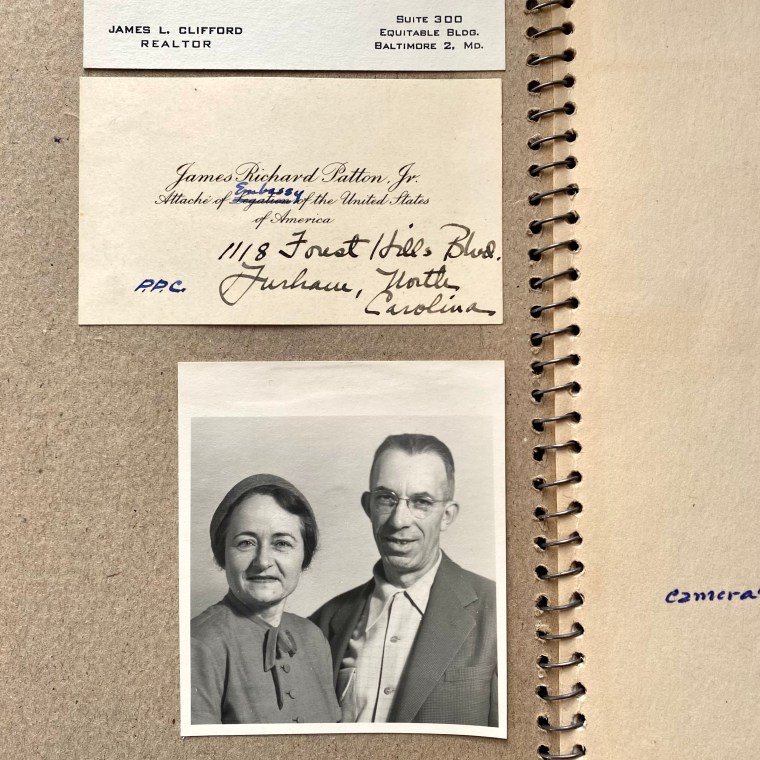 JAMES L. CLIFFORD
REALTOR
SUITE 300
EQUITABLE BLDG.
BALTIMORE 2, MD.
James Richard Patton, Jr.
Embassy
Attaché of Legation of the United States
of America
1118 Forest Hills Blvd.
Durham, North
Carolina
P.P.C.
camera